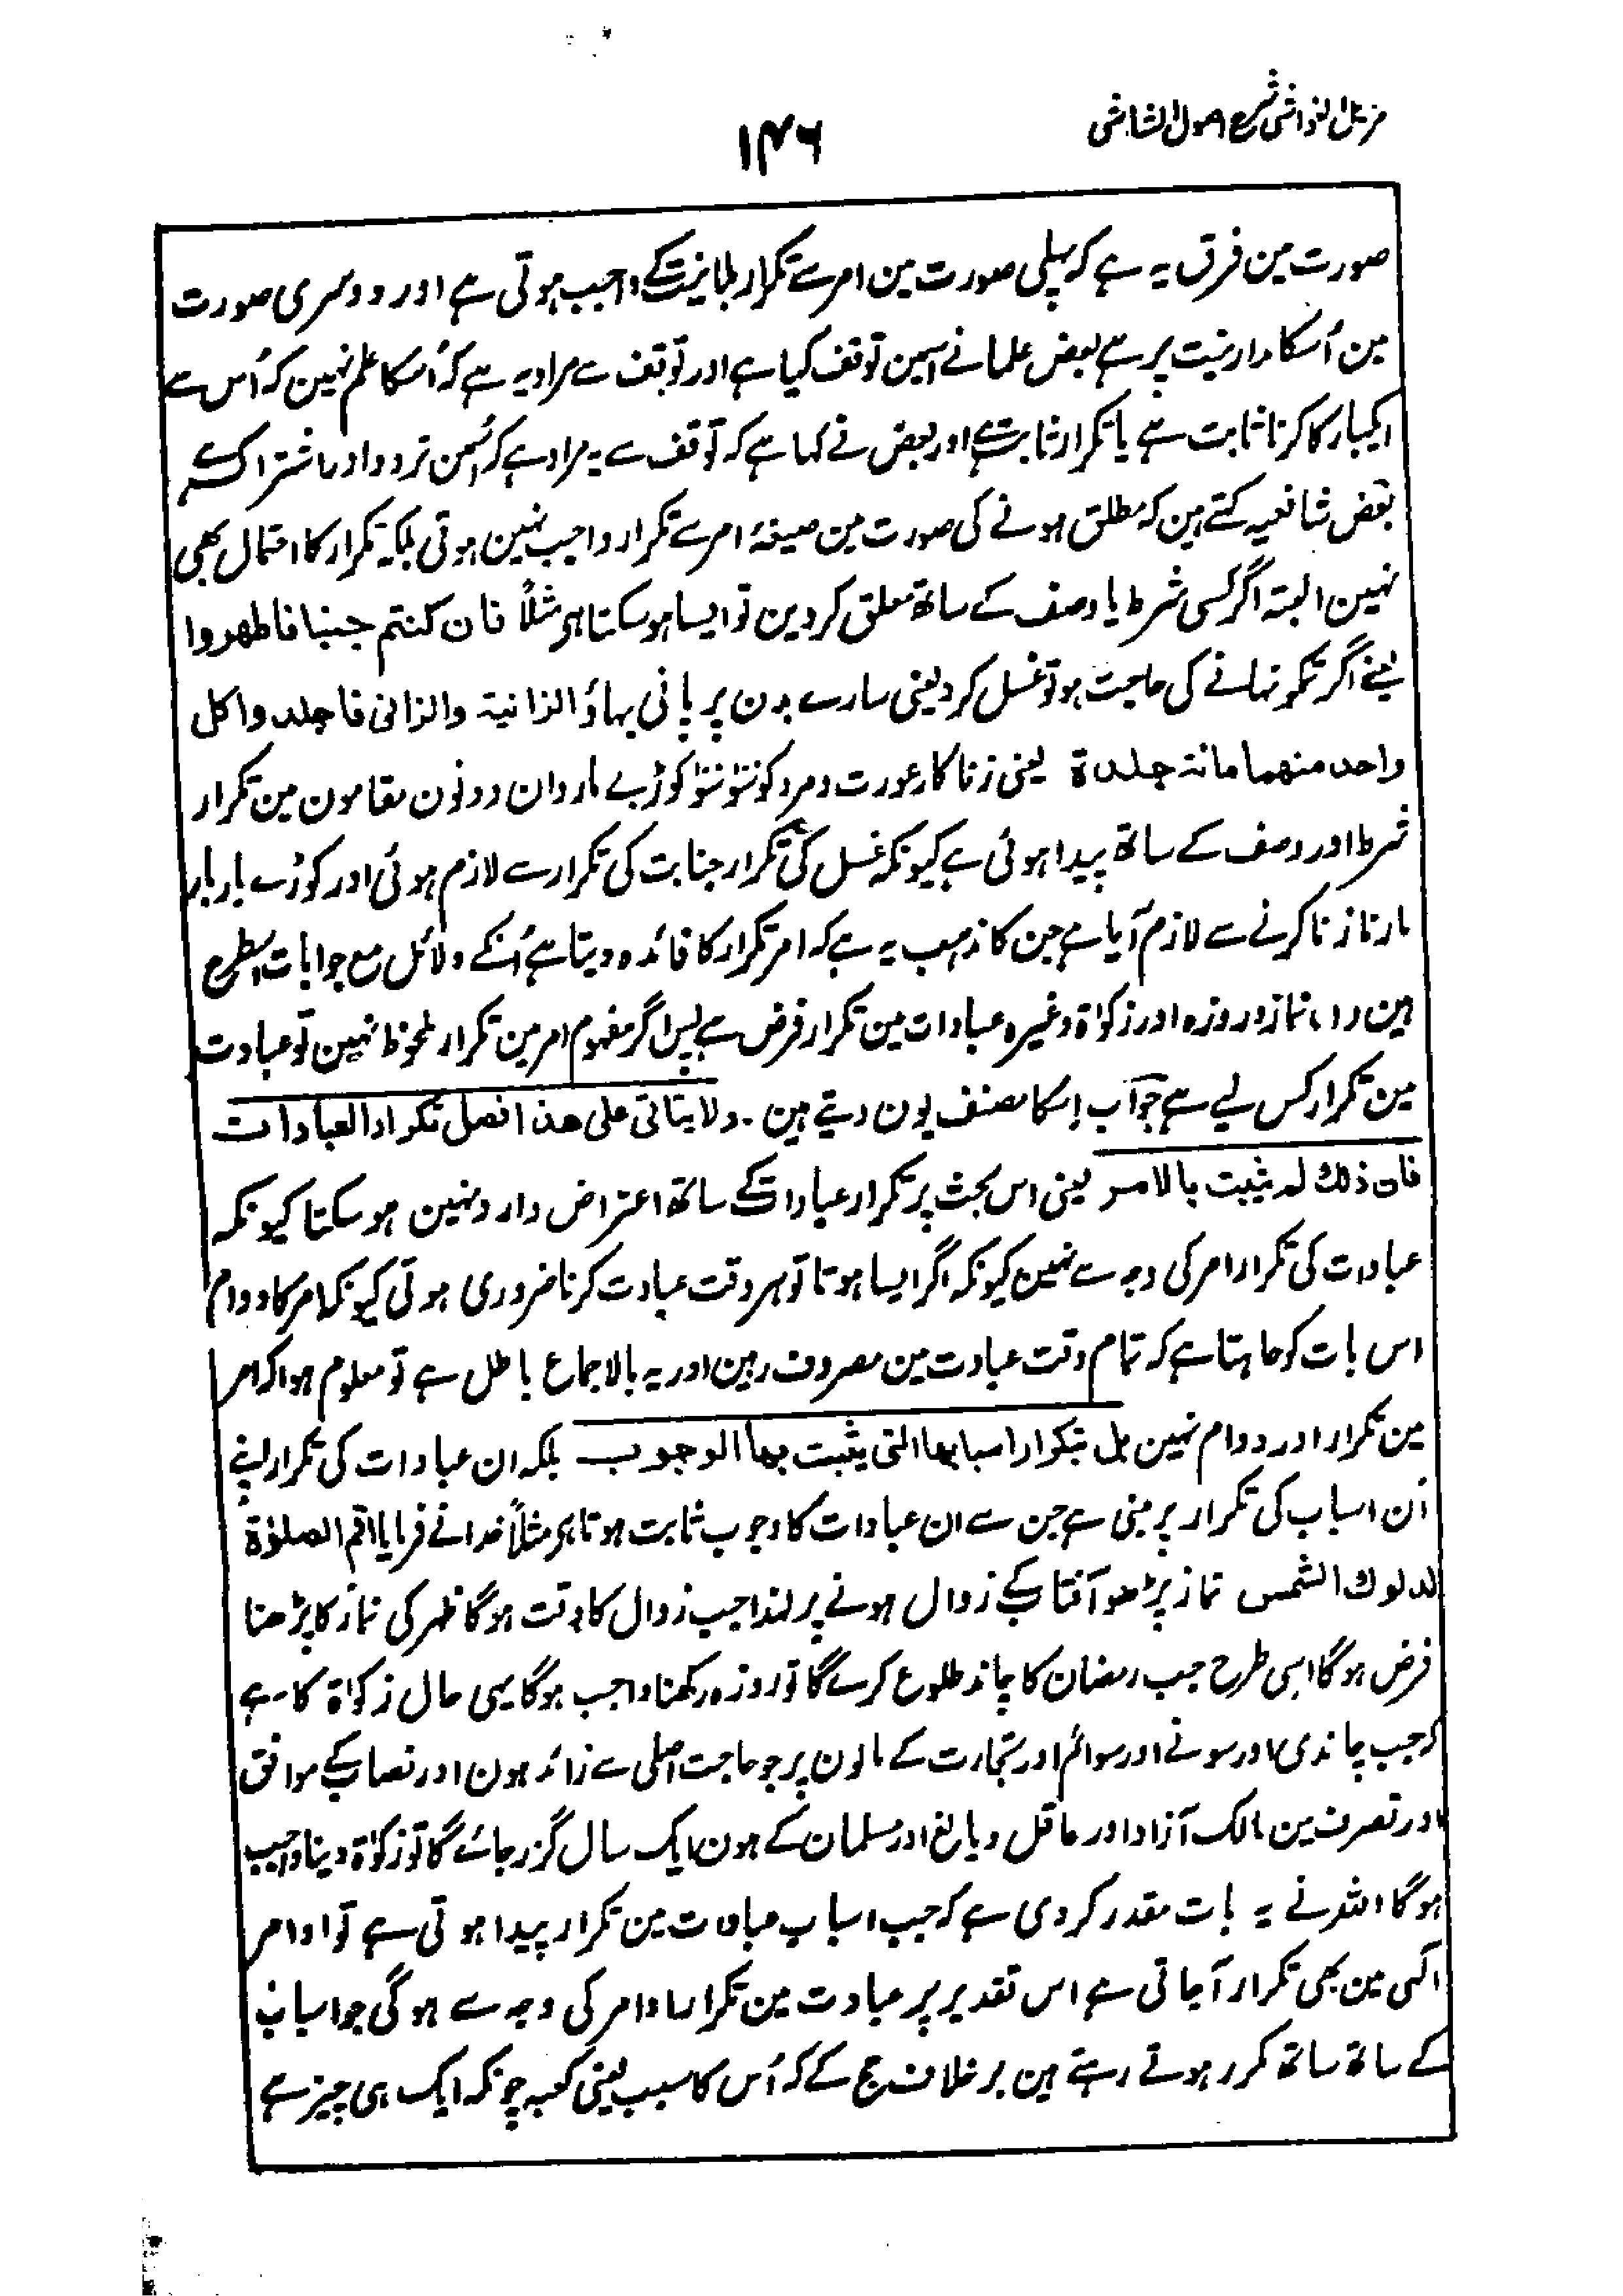 مزیل الغواشی شرح اصول الشاشی
۱۴۶
صورت مین فرق یہ ہے کہ پہلی صورت مین امر سے تکرار بلا نیت کے واجب ہوتی ہے اور دوسری صورت
مین اُسکا مدار نیت پر ہے بعض علما نے اسمین توقف کیا ہے اور توقف سے مراد یہ ہے کہ اُسکا علم نہین کہ اُس سے
ایکبار کا کرنا ثابت ہے یا تکرار ثابت ہے اور بعض نے کہا ہے کہ توقف سے یہ مراد ہے کہ اُسمین تردد اور اشتراک ہے
بعض شافعیہ کہتے ہین کہ مطلق ہونے کی صورت مین صیغۂ امر سے تکرار واجب نہین ہوتی بلکہ تکرار کا احتمال بھی
نہین البتہ اگر کسی شرط یا وصف کے ساتھ معلق کردین تو ایسا ہوسکتا ہی مثلاً فان کنتم جنبا فاطهروا
یعنے اگر تمکو نہانے کی حاجت ہو تو غسل کرو یعنی سارے بدن پر پانی بہاؤ الزانیة والزانی فاجلدوا کل
واحد منهما مائة جلدة یعنی زناکار عورت و مرد کو سَو سَو کوڑے مارو ان دونون مقامون مین تکرار
شرط اور وصف کے ساتھ پیدا ہوئی ہے کیونکہ غسل کی تکرار جنابت کی تکرار سے لازم ہوئی اور کوڑے بار بار
مارنا زنا کرنے سے لازم آیا ہے جن کا مذہب یہ ہے کہ امر تکرار کا فائدہ دیتا ہے اُنکے دلائل مع جوابات اسطرح
ہین (۱) نماز و روزہ اور زکوٰۃ وغیرہ عبادات مین تکرار فرض ہے پس اگر مفہوم امر مین تکرار ملحوظ نہین تو عبادت
مین تکرار کس لیے ہے جواب اِسکا مصنف یون دیتے ہین ۔ ولا یتاتی علی هذا فصل تکرار العبادات
فان ذلك لم یثبت بالامر یعنی اس بحث پر تکرار عبادات کے ساتھ اعتراض وارد نہین ہوسکتا کیونکہ
عبادات کی تکرار امر کی وجہ سے نہین کیونکہ اگر ایسا ہوتا تو ہر وقت عبادت کرنا ضروری ہوتی کیونکہ امر کا دوام
اس بات کو چاہتا ہے کہ تمام وقت عبادت مین مصروف رہین اور یہ بالاجماع باطل ہے تو معلوم ہوا کہ امر
مین تکرار اور دوام نہین بل بتکرار اسبابها التی یثبت بها الوجوب بلکہ ان عبادات کی تکرار اپنے
اُن اسباب کی تکرار پر مبنی ہے جن سے ان عبادات کا وجوب ثابت ہوتا ہی مثلاً خدا نے فرمایا اقم الصلوٰة
لدلوك الشمس نماز پڑھو آفتاب کے زوال ہونے پر لہذا جب زوال کا وقت ہوگا ظہر کی نماز کا پڑھنا
فرض ہوگا اسی طرح جب رمضان کا چاند طلوع کرے گا تو روزہ رکھنا واجب ہوگا یہی حال زکوٰۃ کا ہے
کہ جب چاندی اور سونے اور سوائم اور تجارت کے مالون پر جو حاجت اصلی سے زائد ہون اور نصاب کے موافق
اور تصرف مین مالک آزاد اور عاقل و بالغ اور مسلمان کے ہون ایک سال گزر جائے گا تو زکوٰۃ دینا واجب
ہوگا اللہ نے یہ بات مقدر کردی ہے کہ جب اسباب عبادت مین تکرار پیدا ہوتی ہے تو اوامر
الٰہی مین بھی تکرار آجاتی ہے اس تقدیر پر عبادت مین تکرار اوامر کی وجہ سے ہوگی جو اسباب
کے ساتھ ساتھ مکرر ہوتے رہتے ہین برخلاف حج کے کہ اُس کا سبب یعنی کعبہ چونکہ ایک ہی چیز ہے